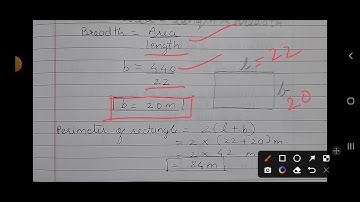 Breadth = Area
length
b = 440
22
b = 20m
l = 22
b
20
Perimeter of rectangle = 2(l+b)
= 2 × (22+20)m
= 2 × 42 m
= 84m